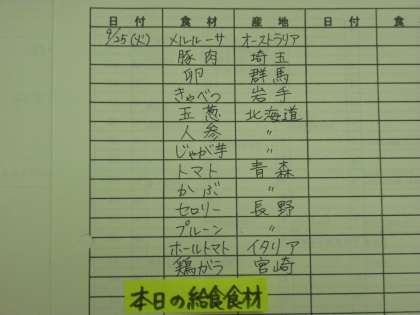 日付 食材 産地 日付 食
9/25(火) メルルーサ オーストラリア
豚肉 埼玉
卵 群馬
きゃべつ 岩手
玉葱 北海道
人参 〃
じゃが芋 〃
トマト 青森
かぶ 〃
セロリー 長野
プルーン 〃
ホールトマト イタリア
鶏ガラ 宮崎
本日の給食食材